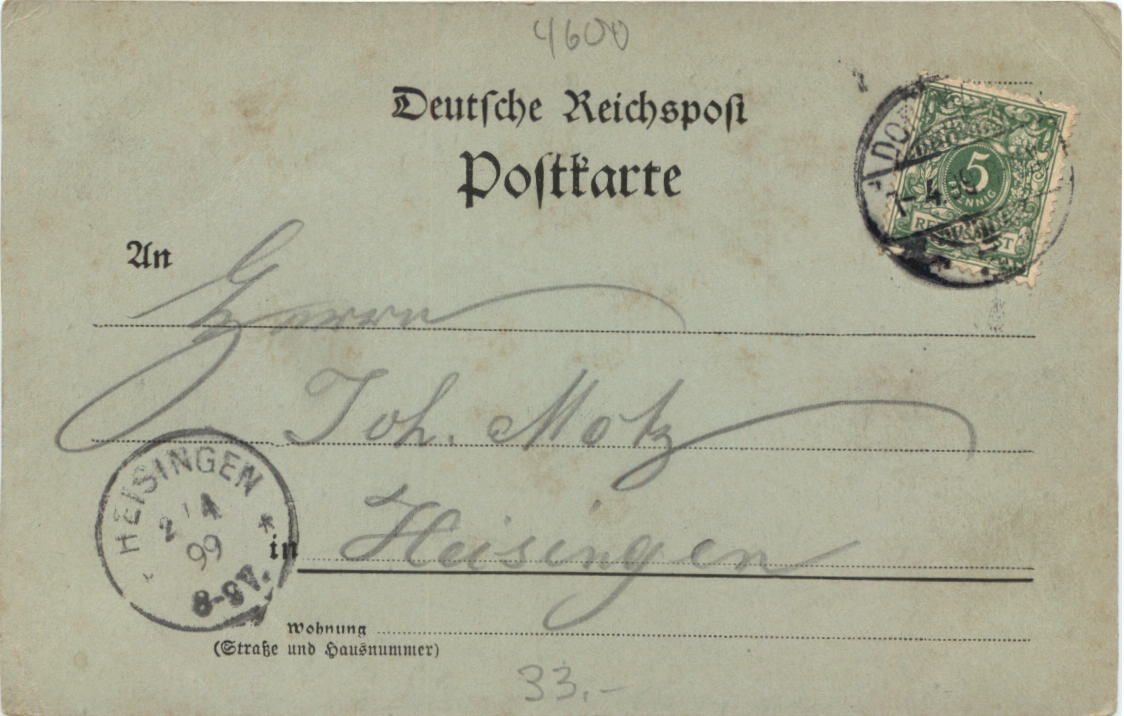 4600
Deutsche Reichspost
Postkarte
DO
1 4 99
5
PFENNIG
REICHSPOST
An
Herrn
Joh. Motz
HEISINGEN
2 4
99
8-9V.
in Heisingen
Wohnung
(Straße und Hausnummer)
33.-